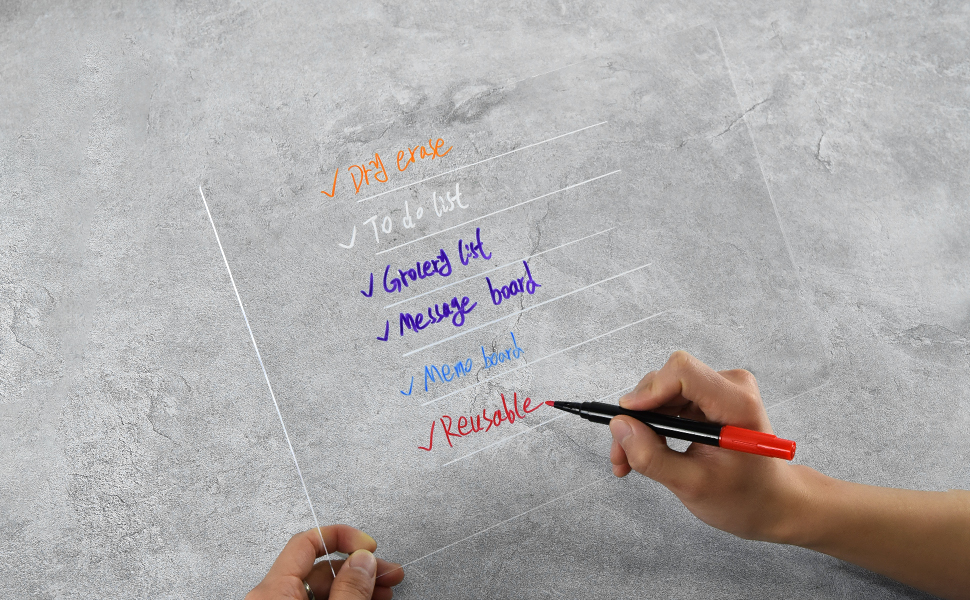 ✓ Dry erase
✓ To do list
✓ Grocery list
✓ Message board
✓ Memo board
✓ Reusable